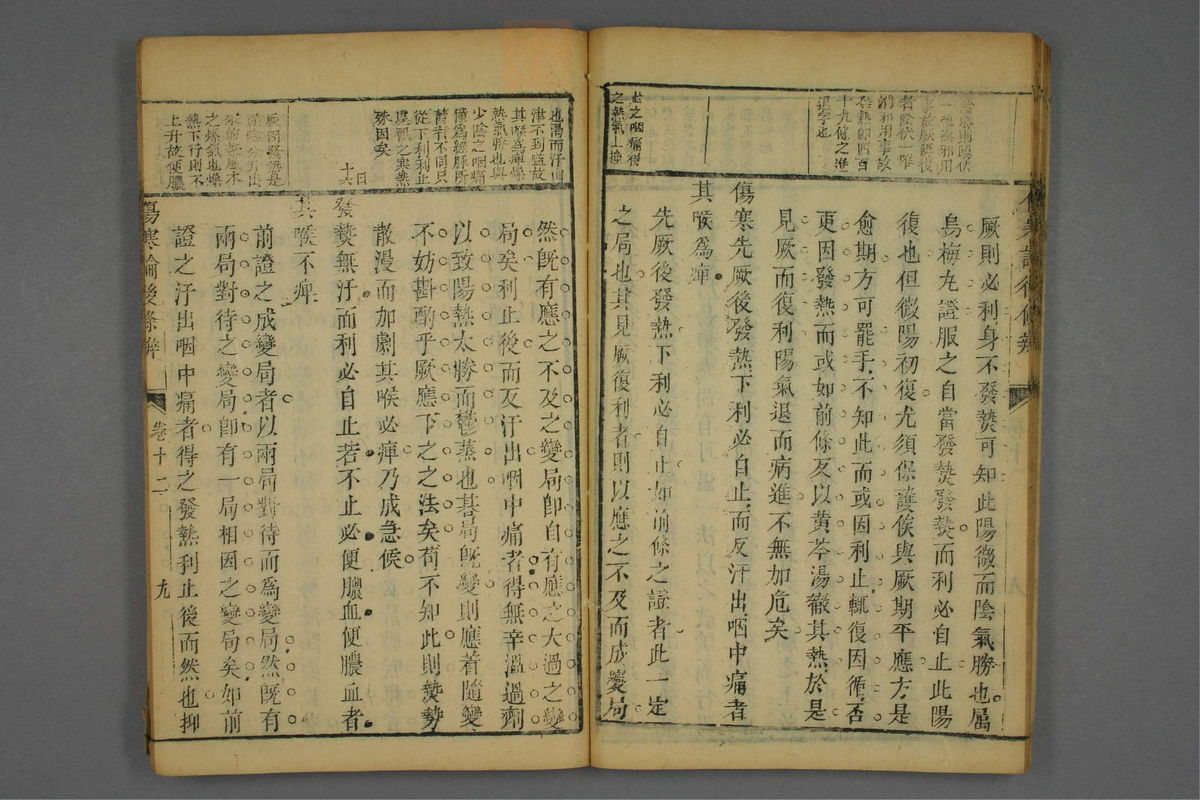 厥則必利身不發熱可知此陽微而陰氣勝也屬
烏梅丸證服之自當發熱發熱而利必自止此陽
復也但微陽初復尤須保護俟與厥期平應方是
愈期方可罷手不知此而或因利止輒復因循否
更因發熱而或如前條反以黃芩湯徹其熱於是
見厥而復利陽氣退而病進不無加危矣
傷寒先厥後發熱下利必自止而反汗出咽中痛者
其喉為痺
先厥後發熱下利必自止如前條之證者此一定
之局也其見厥復利者則以應之不及而成變局
此之咽痛得
之熱氣上撞
然既有應之不及之變局卽自有應之大過之變
局矣利止後而反汗出咽中痛者得無辛溫過劑
以致陽熱太勝而鬱蒸也甚局既變則應着隨變
不妨斟酌乎厥應下之之法矣苟不知此則熱勢
散漫而加劇其喉必痺乃成急候
發熱無汗而利必自止若不止必便膿血便膿血者
其喉不痺
前證之成變局者以兩局對待而為變局然既有
兩局對待之變局卽有一局相因之變局矣如前
證之汗出咽中痛者得之發熱利止後而然也抑
津不到咽故
其喉為痺燥
熱氣勝也與
少陰之咽痛
從下利利止
虛報之寒熱
殊因矣
之燥氣也燥
熱下行則不
上升故便膿
傷寒論後條辨
卷十二
九